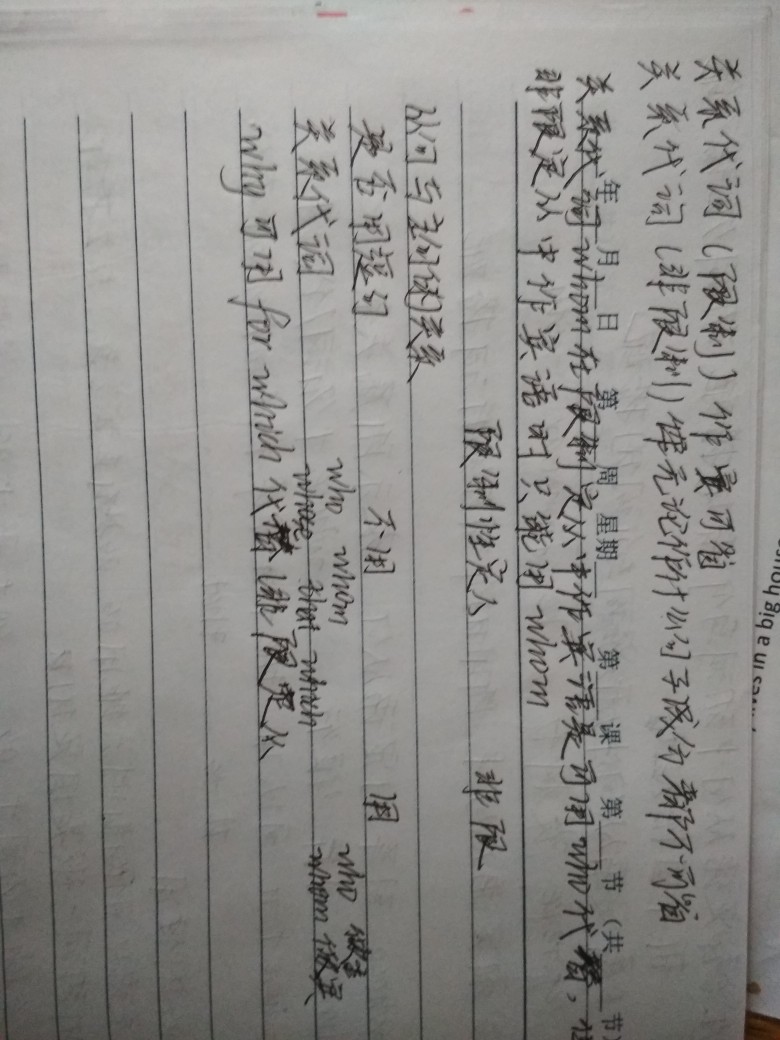 关系代词(限制)作宾可省
关系代词(非限制)无论作什么句子成分都不可省
年 月 日 第 周 星期 第 课 第 节(共 节)
关系代词whom在限制定从中作宾语是可用who代替,
非限定从中作宾语时只能用whom
限制性定从 非限
从句与主句的关系
是否用逗句 不用 用
关系代词 who whom whose that which who 做主 whom 做宾
why可用for which代替 限定从
in a big house